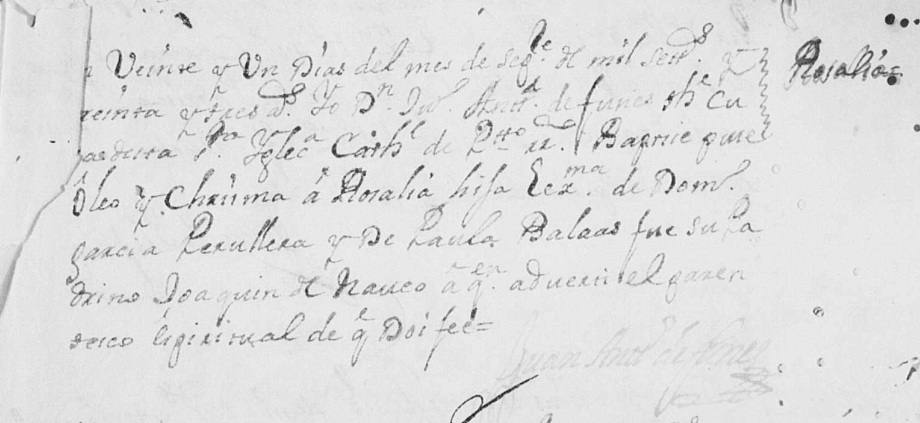 n Veinte y Un Dias del mes de sepe. de mil setts. y
Rosalia
treinta y tres as. Yo Dn. Jun. Antto. de funes The. Cu
ra desta Sta. Yglecia Cathl. de Pto. RRco. Baptice puse
Oleo y Chrisma â Rosalia hija Lexma. de Domo.
garcia Perullera y De Paula Balaas fue su Pa
drino Joaquin de Naueo a qen. aduerti el paren
tesco Espiritual de q Doi fee=
Juan Antto. de funes